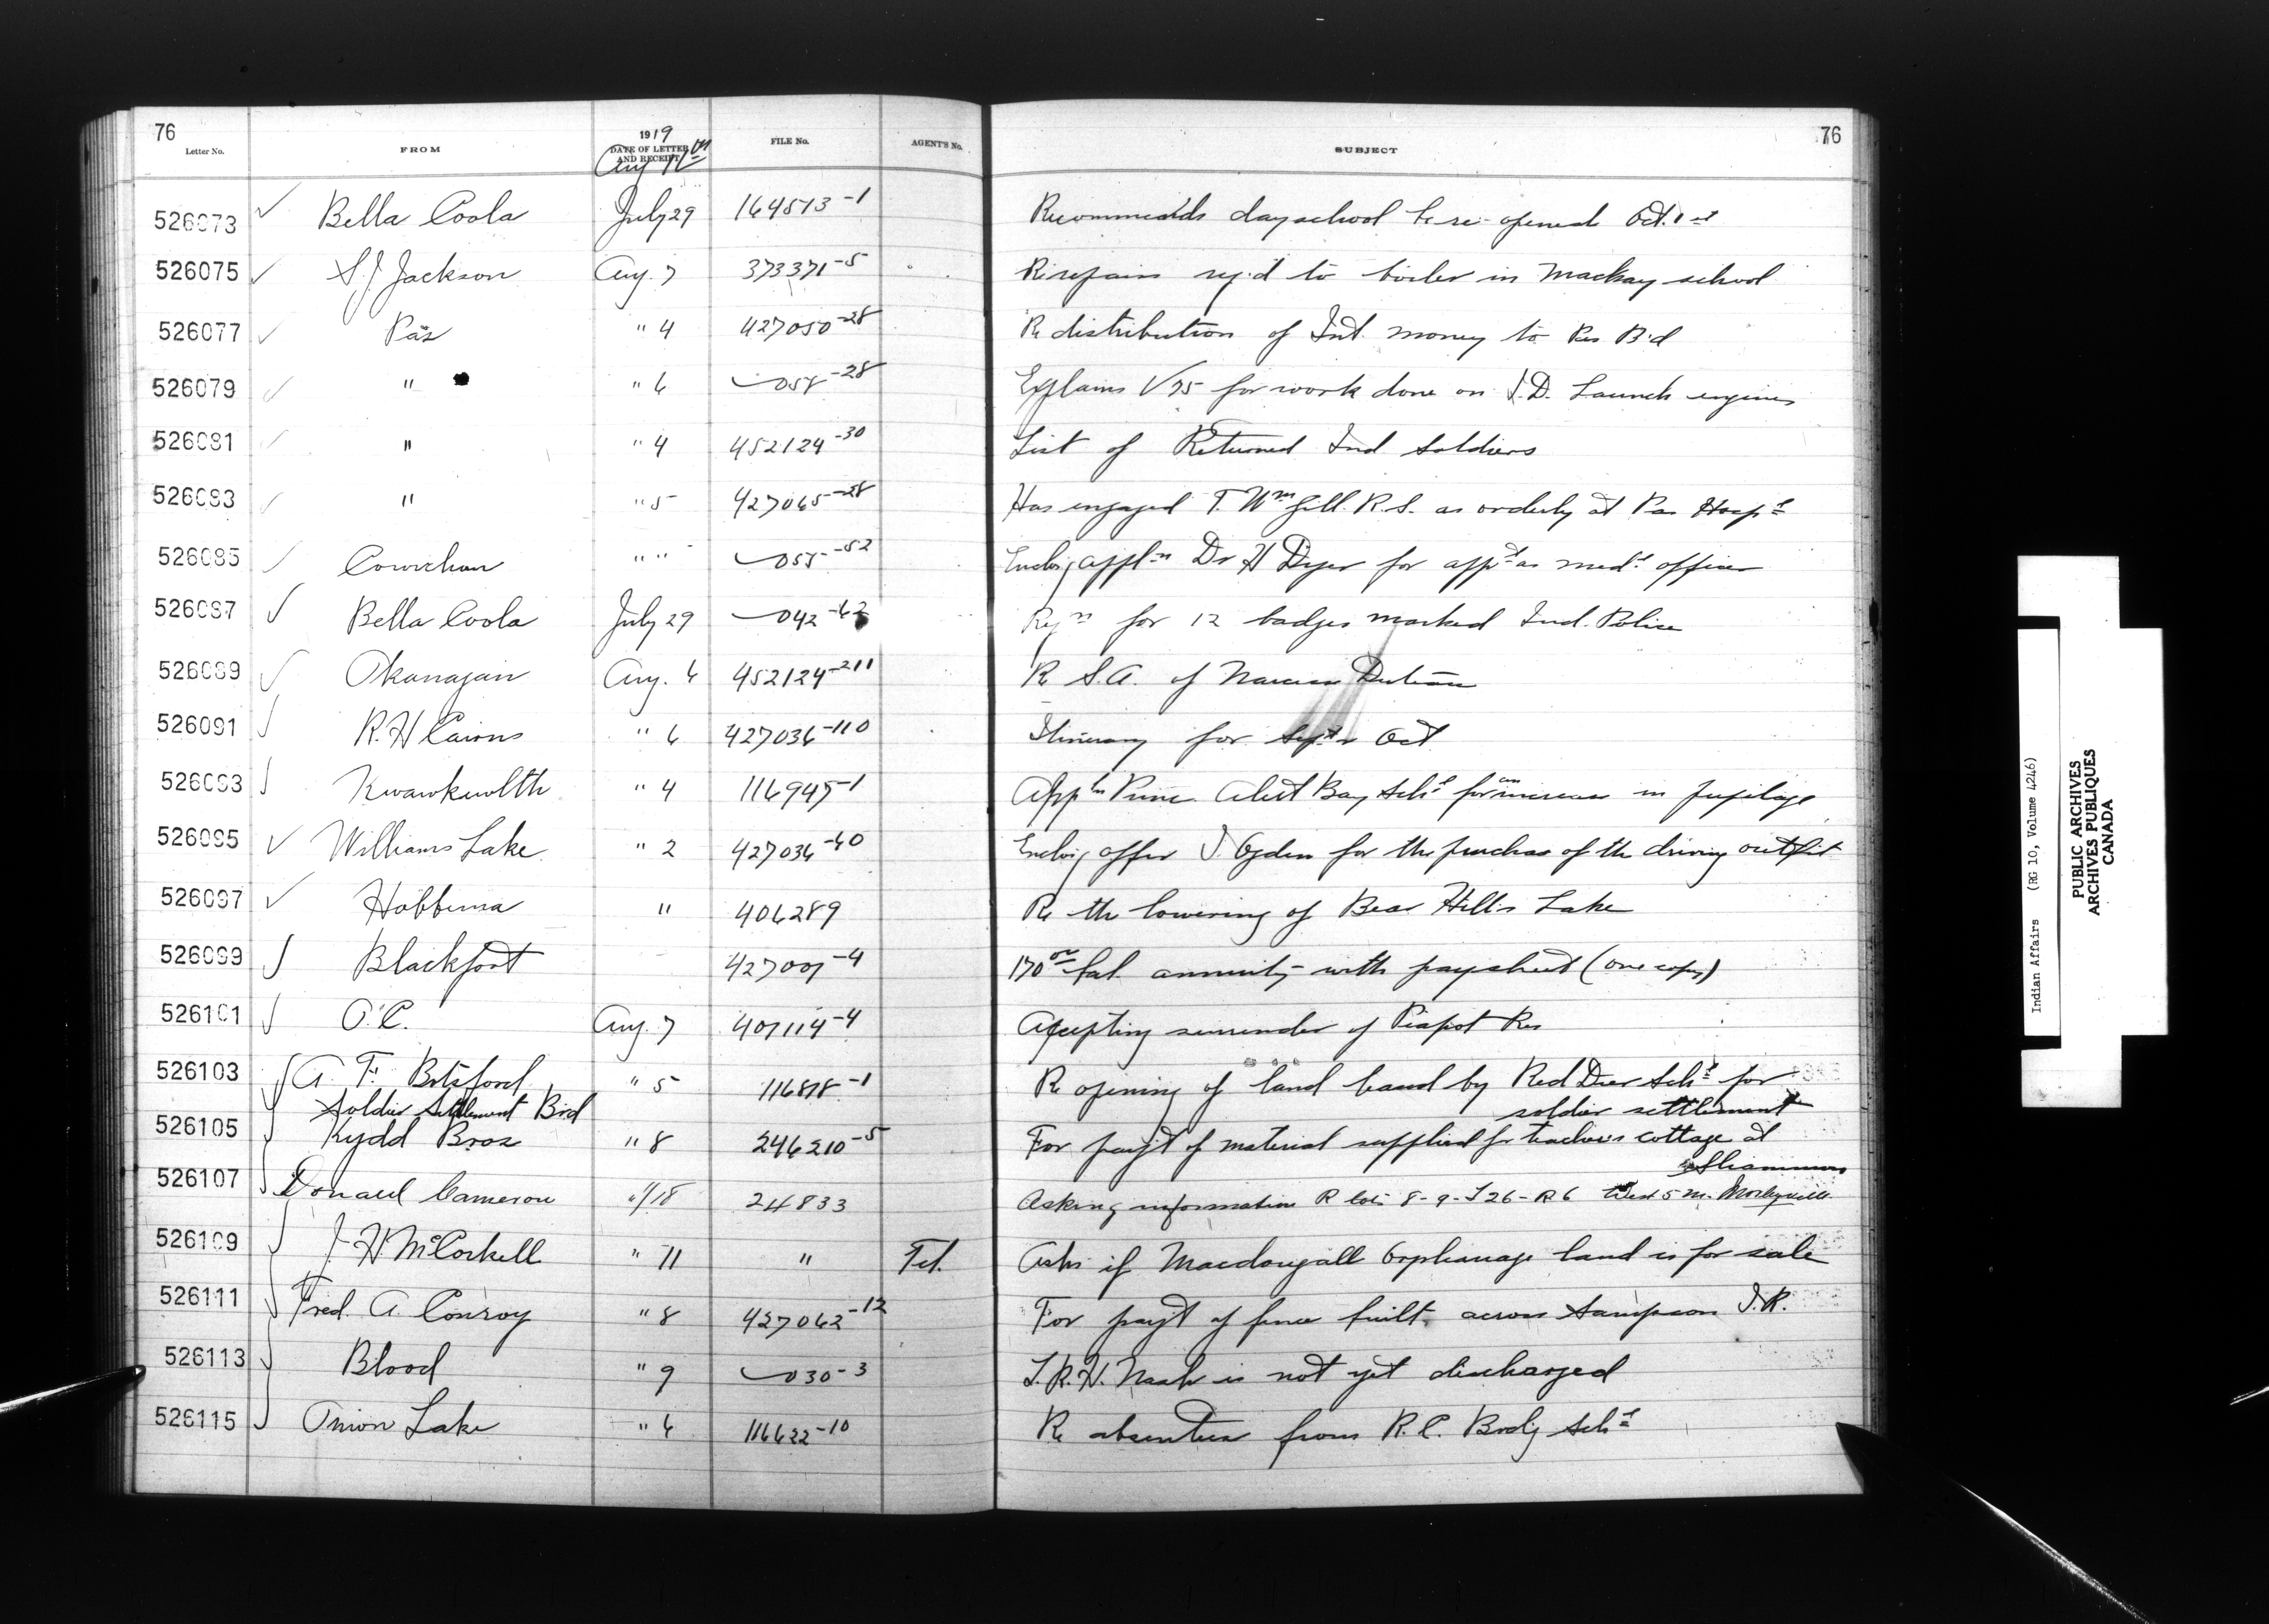 76
1919
Letter No. FROM DATE OF LETTER AND RECEIPT FILE No. AGENT'S No. SUBJECT
76
Aug
526073 Bella Coola July 29 164513-1 Recommends day school be re-opened Oct. 1st
526075 S.J. Jackson Aug. 7 373371-5 Re repairs rq'd to boiler in Mackay school
526077 Pas " 4 427050-28 Re distribution of Int. money to Pas B'd
526079 " " 6 058-28 Explains V 75 for work done on I.D. Launch engines
526081 " " 4 452124-30 List of Returned Ind soldiers
526083 " " 5 427065-28 Has engaged T. Wm Gill. R.S. as orderly at Pas Hospl
526085 Cowichan " " 055-52 Enclo'g appln Dr H Dyer for appt as medl officer
526087 Bella Coola July 29 042-62 Rqn for 12 badges marked Ind. Police
526089 Okanagan Aug. 6 452124-211 Re S.A. of
526091 R.H Cairns " 6 427036-110 Itinerary for Sept & Oct
526093 Kwawkewlth " 4 116945-1 Appln Princ. Alert Bay Schl for an increase in pupilage
526095 Williams Lake " 2 427036-60 Enclo'g offer J. Ogden for the purchase of the driving outfit
526097 Hobbema " 406289 Re the lowering of Bear Hills Lake
526099 Blackfoot 427007-4 170 00 bal. annuity with paysheet (one copy)
526101 O.C. Aug. 7 401114-4 Accepting surrender of Piapot Res
526103 A. F. Botsford " 5 116818-1 Re opening of land leased by Red Deer Schl for
Soldier Settlement Brd soldier settlement
526105 Kydd Bros " 8 246210-5 For paym't of material supplied for teacher's cottage at
Sliammon
526107 Donald Cameron "/18 24833 Asking information R lots 8-9-T26-R6 West 5 M. Morleyville
526109 J. H McCorkell " 11 " Tel. Asks if Macdougall Orphanage land is for sale
526111 Fred. A. Conroy " 8 427062-12 For paym't of fence built across Sampson I.R.
526113 Blood " 9 030-3 T.R.H. Nash is not yet discharged
526115 Onion Lake " 6 116622-10 Re absentees from R.C. Brd'g Schl
Indian Affairs (RG 10, Volume 4246)
PUBLIC ARCHIVES
ARCHIVES PUBLIQUES
CANADA